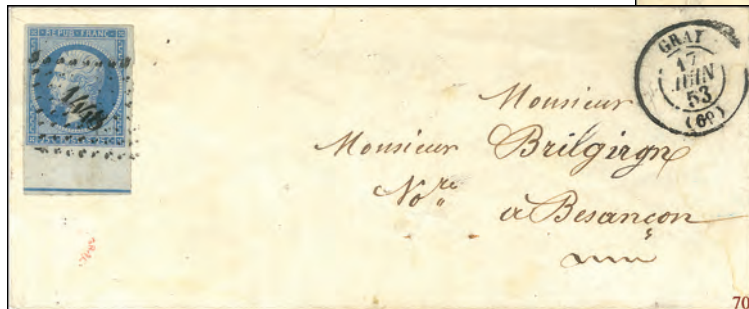 REPUB. FRANC.
1448
GRAY
17
JUIN
53
(69)
Monsieur
Monsieur Brilgirgne
No.re
a Besançon
70